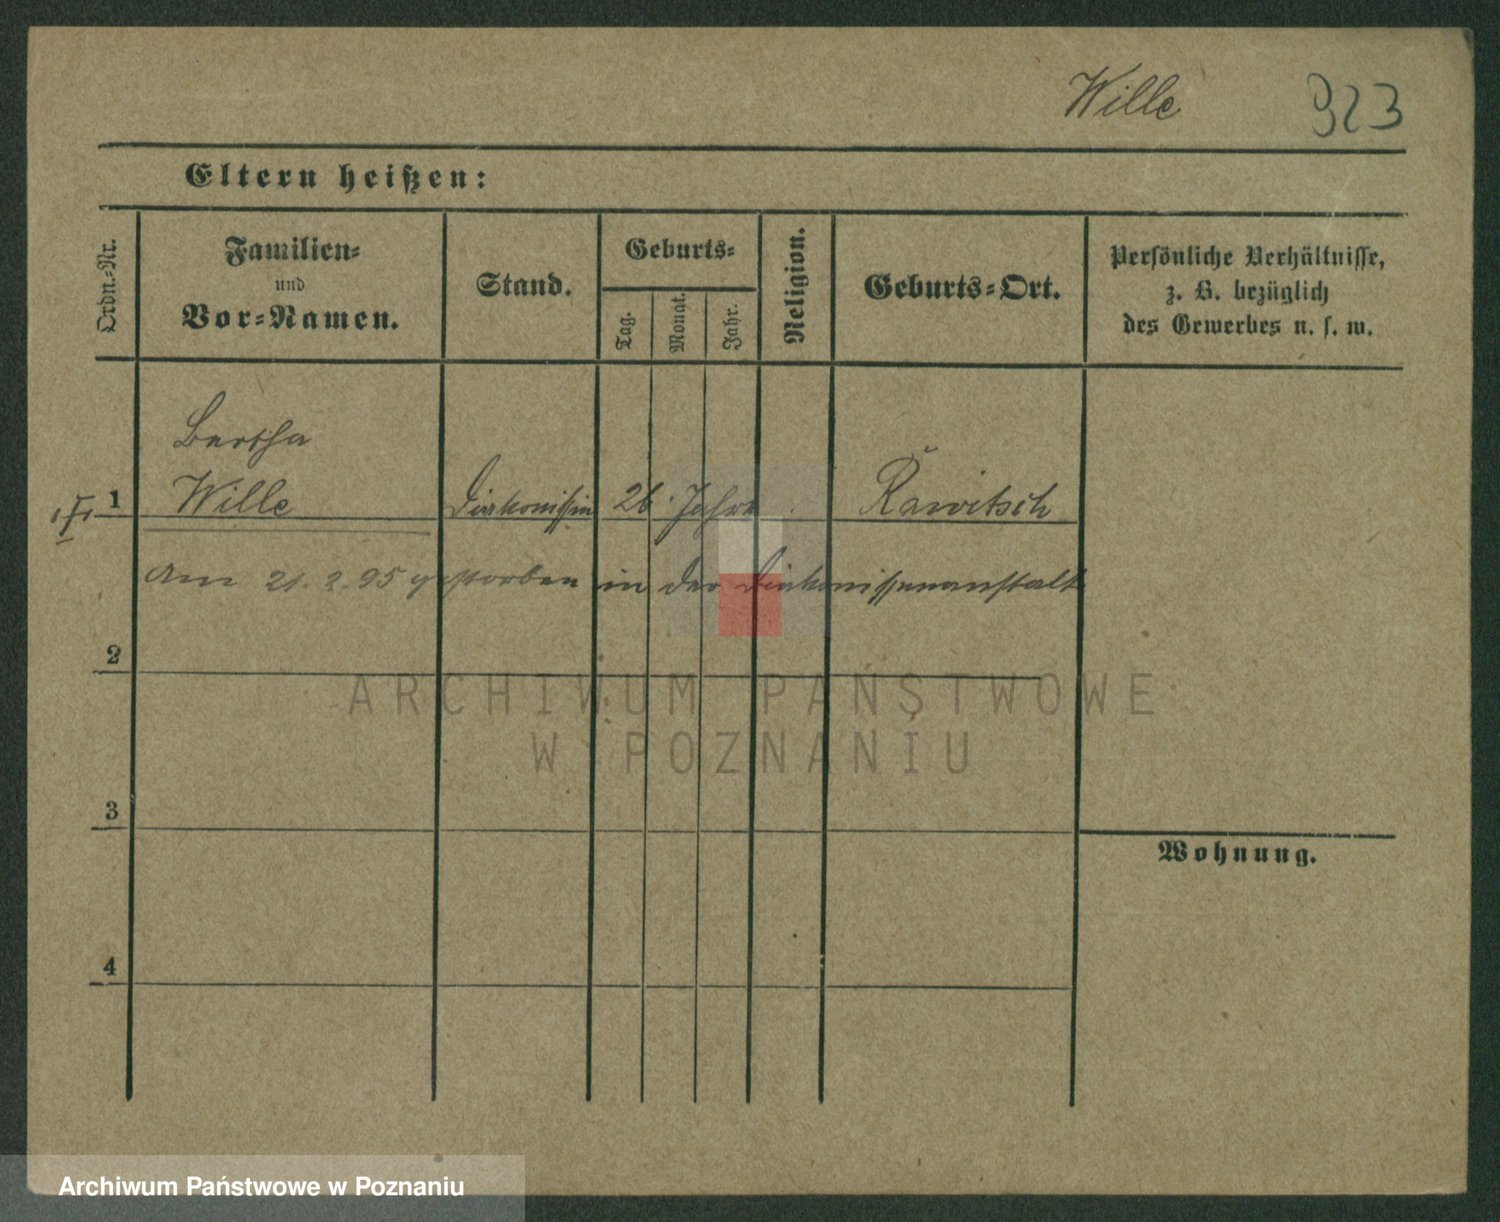 Wille 923
Eltern heißen:
Ordn.-Nr.
Familien-
und
Vor-Namen.
Stand.
Geburts-
Tag.
Monat.
Jahr.
Religion.
Geburts-Ort.
Persönliche Verhältnisse,
z. B. bezüglich
des Gewerbes u. s. w.
Bertha
1 Wille Diakonissin 26 Jahre Rawitsch
Am 21.2.95 gestorben in der Diakonissenanstalt
2
ARCHIWUM PAŃSTWOWE
W POZNANIU
3
Wohnung.
4
Archiwum Państwowe w Poznaniu